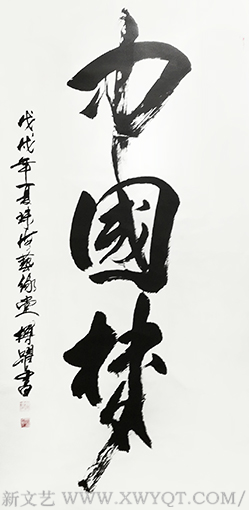 中國梦
戊戌年夏辣竹藝缘堂 博躍書
新文艺 WWW.XWYQT.COM/